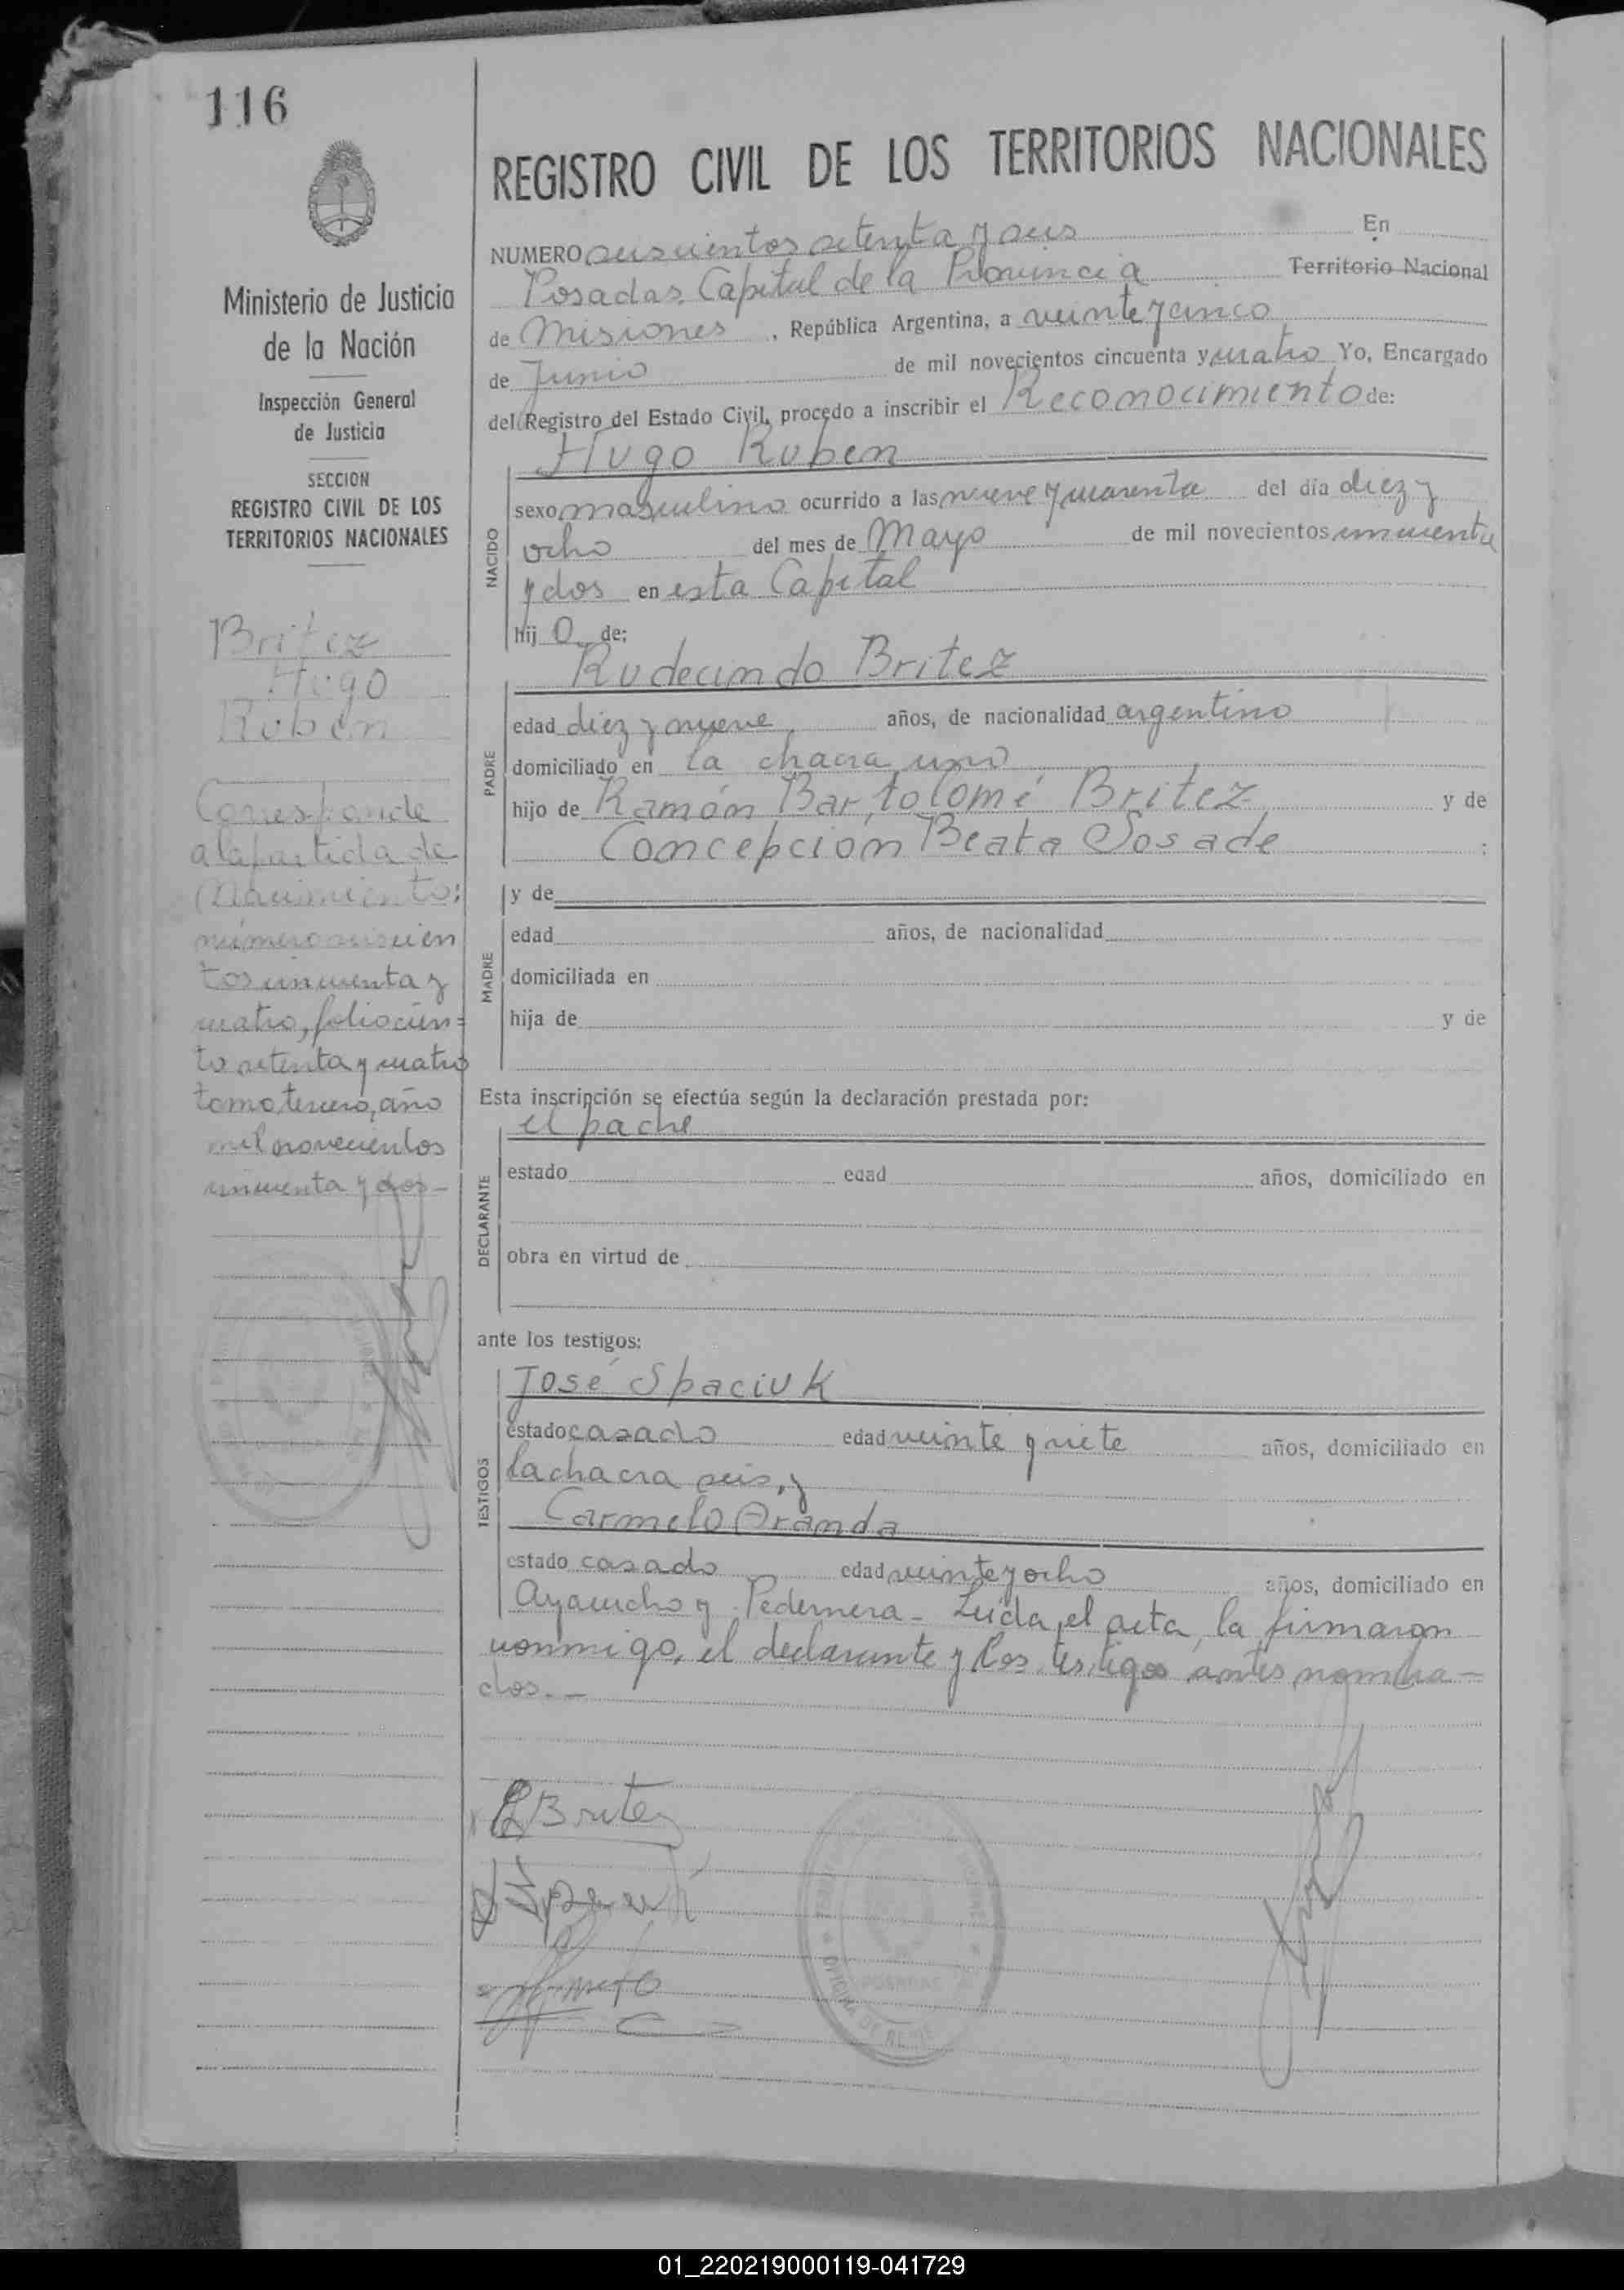 116
Ministerio de Justicia
de la Nación
Inspección General
de Justicia
SECCION
REGISTRO CIVIL DE LOS
TERRITORIOS NACIONALES
Britez
Hugo
Rubén
Corresponde
a la partida de
Nacimiento:
número seiscien
tos cincuenta y
cuatro, folio cien=
to setenta y cuatro
tomo tercero, año
mil novecientos
cincuenta y dos-
REGISTRO CIVIL DE LOS TERRITORIOS NACIONALES
NUMERO seiscientos setenta y seis En
Posadas, Capital de la Provincia Territorio Nacional
de Misiones, República Argentina, a veinte y cinco
de Junio de mil novecientos cincuenta y cuatro Yo, Encargado
del Registro del Estado Civil, procedo a inscribir el Reconocimiento de:
Hugo Ruben
NACIDO
sexo masculino ocurrido a las nueve y cuarenta del día diez y
ocho del mes de Mayo de mil novecientos cincuenta
y dos en esta Capital
hij o de:
Rudecindo Britez
PADRE
edad diez y nueve años, de nacionalidad argentino
domiciliado en la chacra uno
hijo de Ramón Bartolomé Britez, y de
Concepción Beata Sosa de :
y de
MADRE
edad años, de nacionalidad
domiciliada en
hija de y de
Esta inscripción se efectúa según la declaración prestada por:
el padre
DECLARANTE
estado edad años, domiciliado en
obra en virtud de
ante los testigos:
José Spaciuk
TESTIGOS
estado casado edad veinte y siete años, domiciliado en
la chacra seis, y
Carmelo Aranda
estado casado edad veinte y ocho años, domiciliado en
Ayacucho y Pedernera - Leida el acta, la firmaron
conmigo, el declarante y los testigos antes nombra-
dos. -
R Britez
POSADAS
01_220219000119-041729